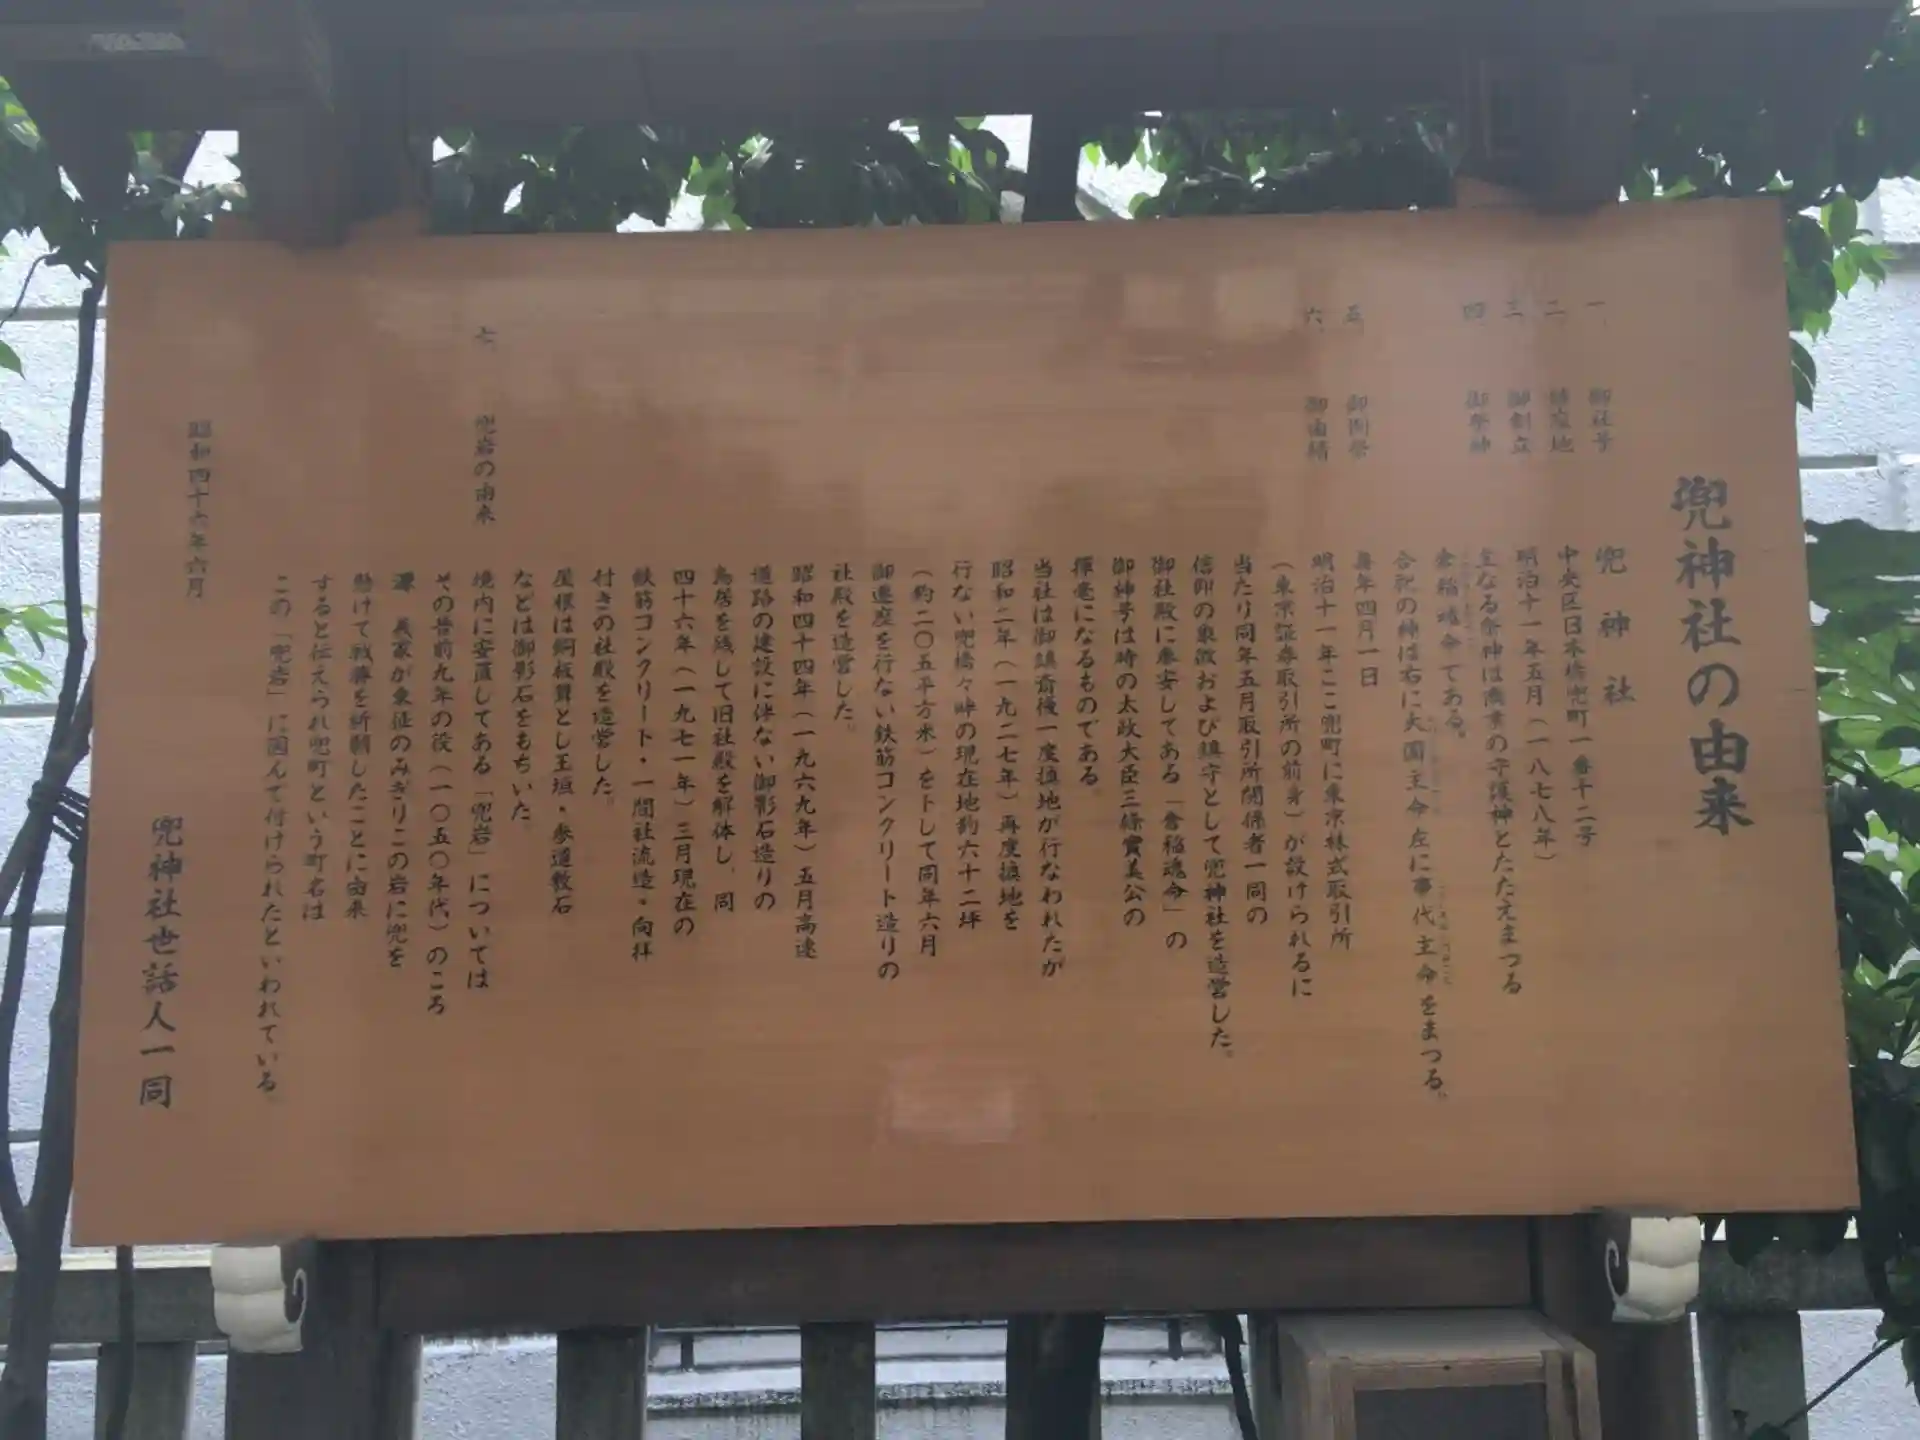 兜神社の由来
一、御社号 兜神社
二、鎮座地 中央区日本橋兜町一番十二号
三、御創立 明治十一年五月(一八七八年)
四、御祭神 主なる祭神は商業の守護神とたたえまつる
倉稲魂命である。
合祀の神は右に大国主命左に事代主命をまつる。
五、御例祭 毎年四月一日
六、御由緒 明治十一年ここ兜町に東京株式取引所
(東京証券取引所の前身)が設けられるに
当たり同年五月取引所関係者一同の
信仰の象徴および鎮守として兜神社を造営した。
御社殿に奉安してある「倉稲魂命」の
御神号は時の太政大臣三條實美公の
揮毫になるものである。
当社は御鎮斎後一度換地が行なわれたが
昭和二年(一九二七年)再度換地を
行ない兜橋々畔の現在地約六十二坪
(約二〇五平方米)を卜して同年六月
御遷座を行ない鉄筋コンクリート造りの
社殿を造営した。
昭和四十四年(一九六九年)五月高速
道路の建設に伴ない御影石造りの
鳥居を残して旧社殿を解体し、同
四十六年(一九七一年)三月現在の
鉄筋コンクリート・一間社流造・向拝
付きの社殿を造営した。
屋根は銅板葺とし玉垣・参道敷石
などは御影石をもちいた。
七、兜岩の由来 境内に安置してある「兜岩」については
その昔前九年の役(一〇五〇年代)のころ
源 義家が東征のみぎりこの岩に兜を
懸けて戦勝を祈願したことに由来
すると伝えられ兜町という町名は
この「兜岩」に因んで付けられたといわれている。
昭和四十六年六月
兜神社世話人一同